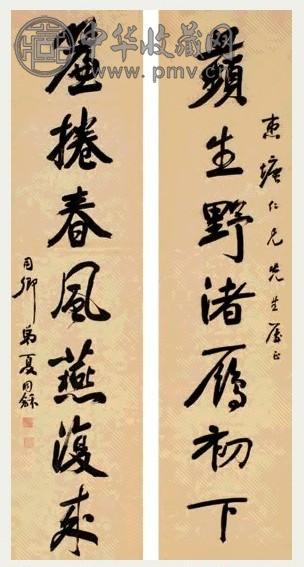 中华收藏网
www.pmv.cn
惠塘仁兄先生属正
蘋生野渚鴈初下
簾捲春風燕復來
用卿弟夏同龢